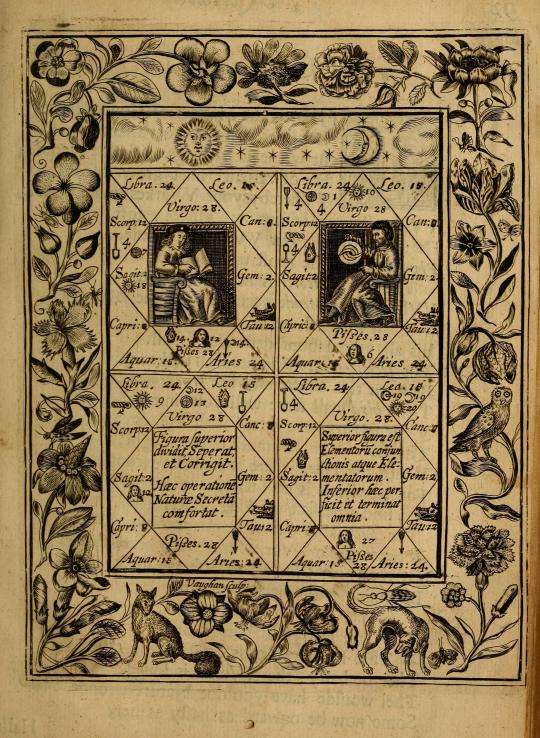 Libra. 24. Leo. 15.
Virgo: 28.
Scorp: 12 Can: 8.
4
7
Sagit: 2 Gem: 2
18
Capri: 8 Tau: 12
14. 12 14.
Pisses 28
Aquar: 15 Aries 24
Libra. 24 Leo. 15.
1 10
4 4 Virgo 28
Scorp: 12 Can: 8.
4
Sagit: 2 Gem: 2
Capric: 8 Tau: 12
Pisses. 28
6
Aquar: 15 Aries 24
Libra. 24. Leo 15
9 12 13
Virgo 28
Scorp: 12 Canc: 8
Figura superior
dividit, Seperat,
et Corrigit.
Hæc operatione
Naturæ Secreta
comfortat.
Sagit: 2 Gem: 2
10
Capri: 8 Tau: 12
Pisses. 28
Aquar: 15 Aries: 24.
Libra. 24. Leo. 15
4 19 19
20
Virgo. 28.
Scorp: 12 Canc: 8
Superior figura est
Elementorū conjun
ctionis atque Ele-
mentatorum.
Inferior hæc per-
ficit et terminat
omnia.
Sagit: 2 Gem: 2
Capri: 8 Tau: 12
27
Pisses
28
Aquar: 15 Aries: 24.
Vaughan sculp: